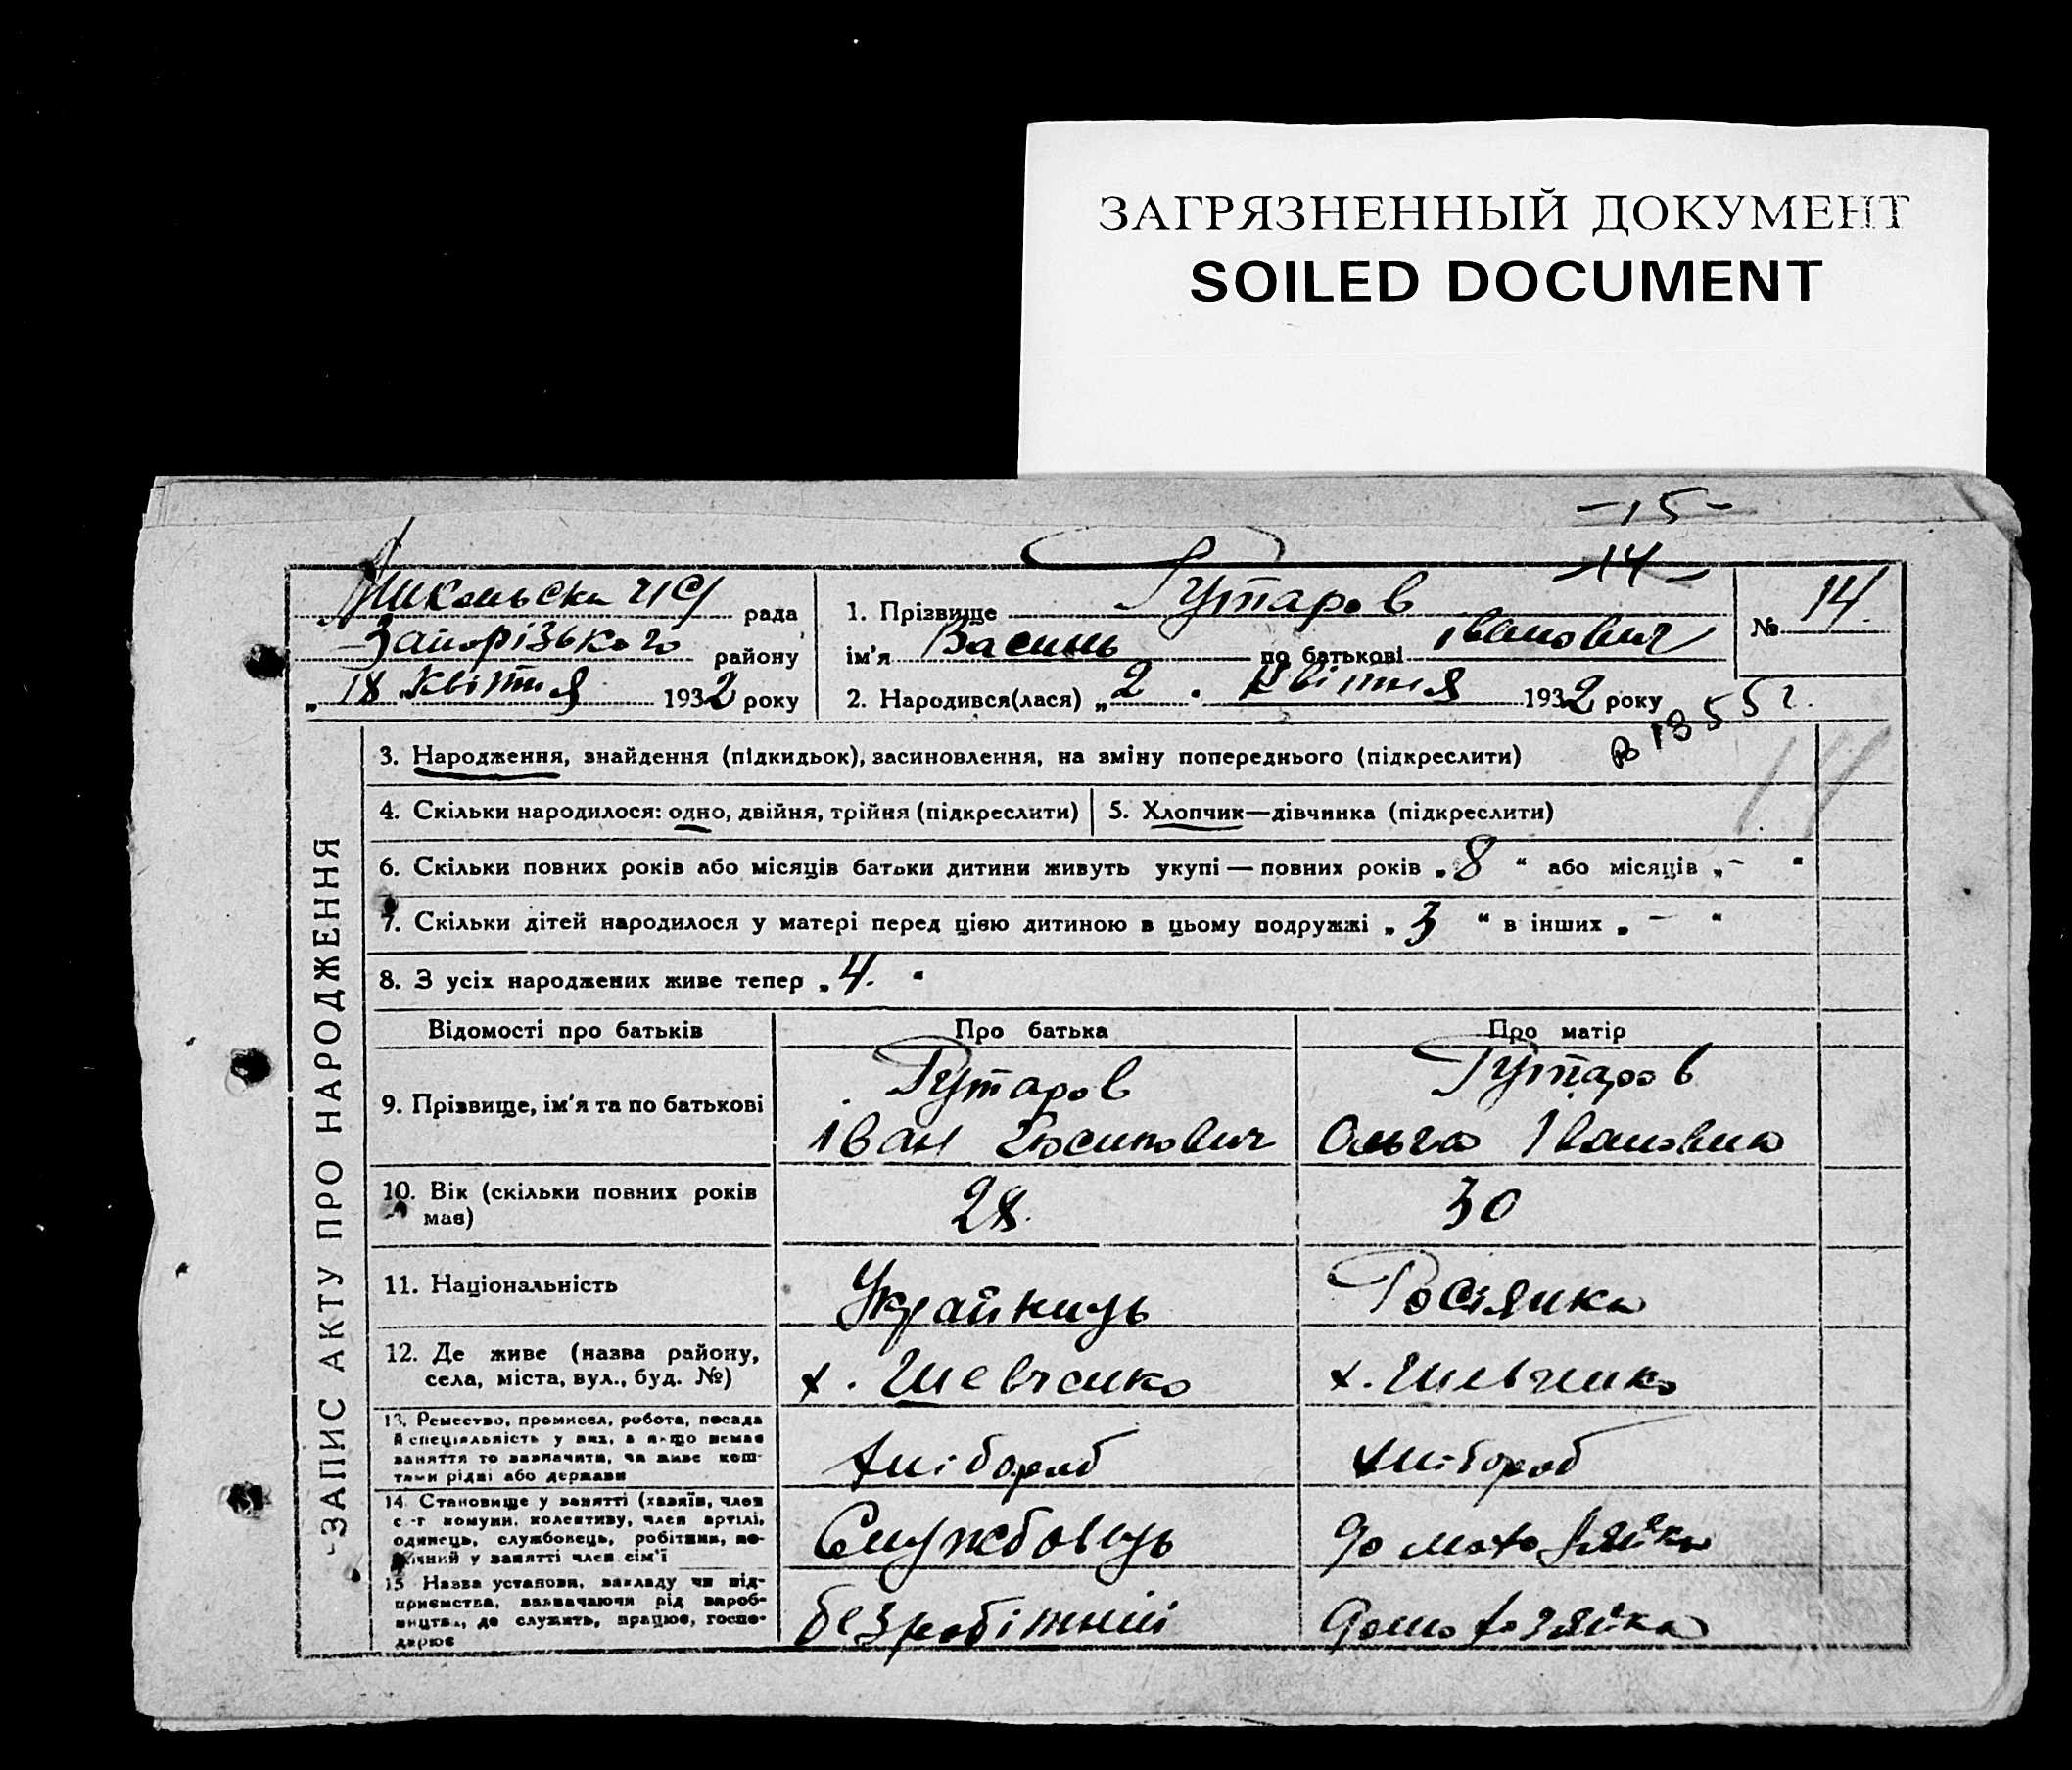 ЗАГРЯЗНЕННЫЙ ДОКУМЕНТ
SOILED DOCUMENT
-15-
-14-
рада
Запорізького району
„18" квітня 1932 року
1. Прізвище Гутаров
ім'я Василь по батькові Іванович
№ 14
2. Народився(лася) „2" квітня 1932 року
ЗАПИС АКТУ ПРО НАРОДЖЕННЯ
3. Народження, знайдення (підкидьок), засиновлення, на зміну попереднього (підкреслити)
4. Скільки народилося: одно, двійня, трійня (підкреслити)
5. Хлопчик—дівчинка (підкреслити)
6. Скільки повних років або місяців батьки дитини живуть укупі — повних років „8" або місяців „-"
7. Скільки дітей народилося у матері перед цією дитиною в цьому подружжі „3" в інших „-"
8. З усіх народжених живе тепер „4."
Відомості про батьків Про батька Про матір
9. Прізвище, ім'я та по батькові
Гутаров
Іван
Гутаров
Ольга Івановна
10. Вік (скільки повних років
має)
28
30
11. Національність
Українець
Росіянка
12. Де живе (назва району,
села, міста, вул., буд. №)
х. Шевченко
х. Шевченко
13. Ремество, промисел, робота, посада
й спеціяльність у них, а якщо немає
заняття то зазначити, чи живе кош-
тами рідні або держави
хлібороб
хлібороб
14. Становище у занятті (хазяїн, член
с.-г комуни, колективу, член артілі,
одинець, службовець, робітник, по-
мічний у занятті член сім'ї
Службовець
домохозяйка
15 Назва установи, закладу чи під-
приємства, зазначаючи рід вироб-
ництва, де служить, працює, госпо-
дарює
безробітний
домохозяйка